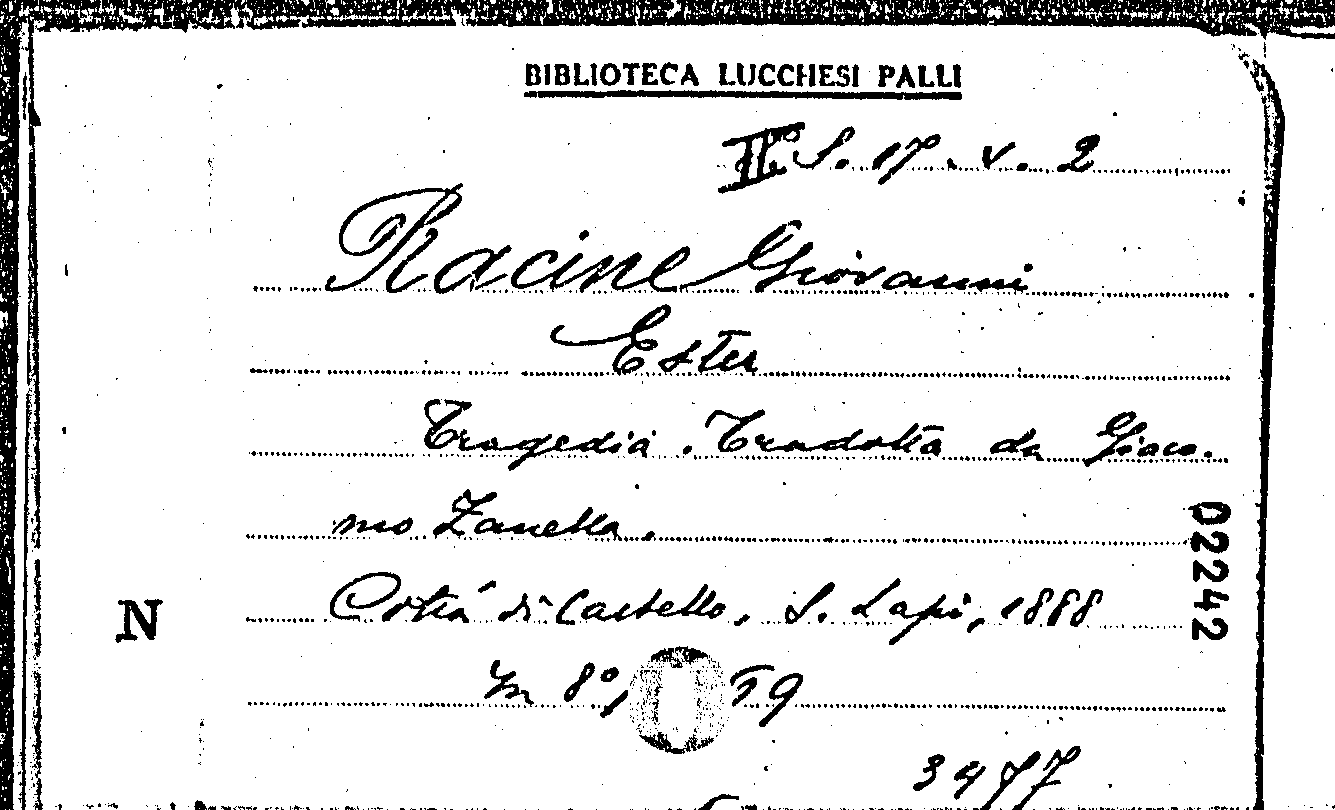 BIBLIOTECA LUCCHESI PALLI
II° S. 17. v. 2
Racine Giovanni
Ester
Tragedia. Tradotta da Giaco-
mo Zanella.
Città di Castello, S. Lapi, 1888
N
in 8°, 59
02242
3477